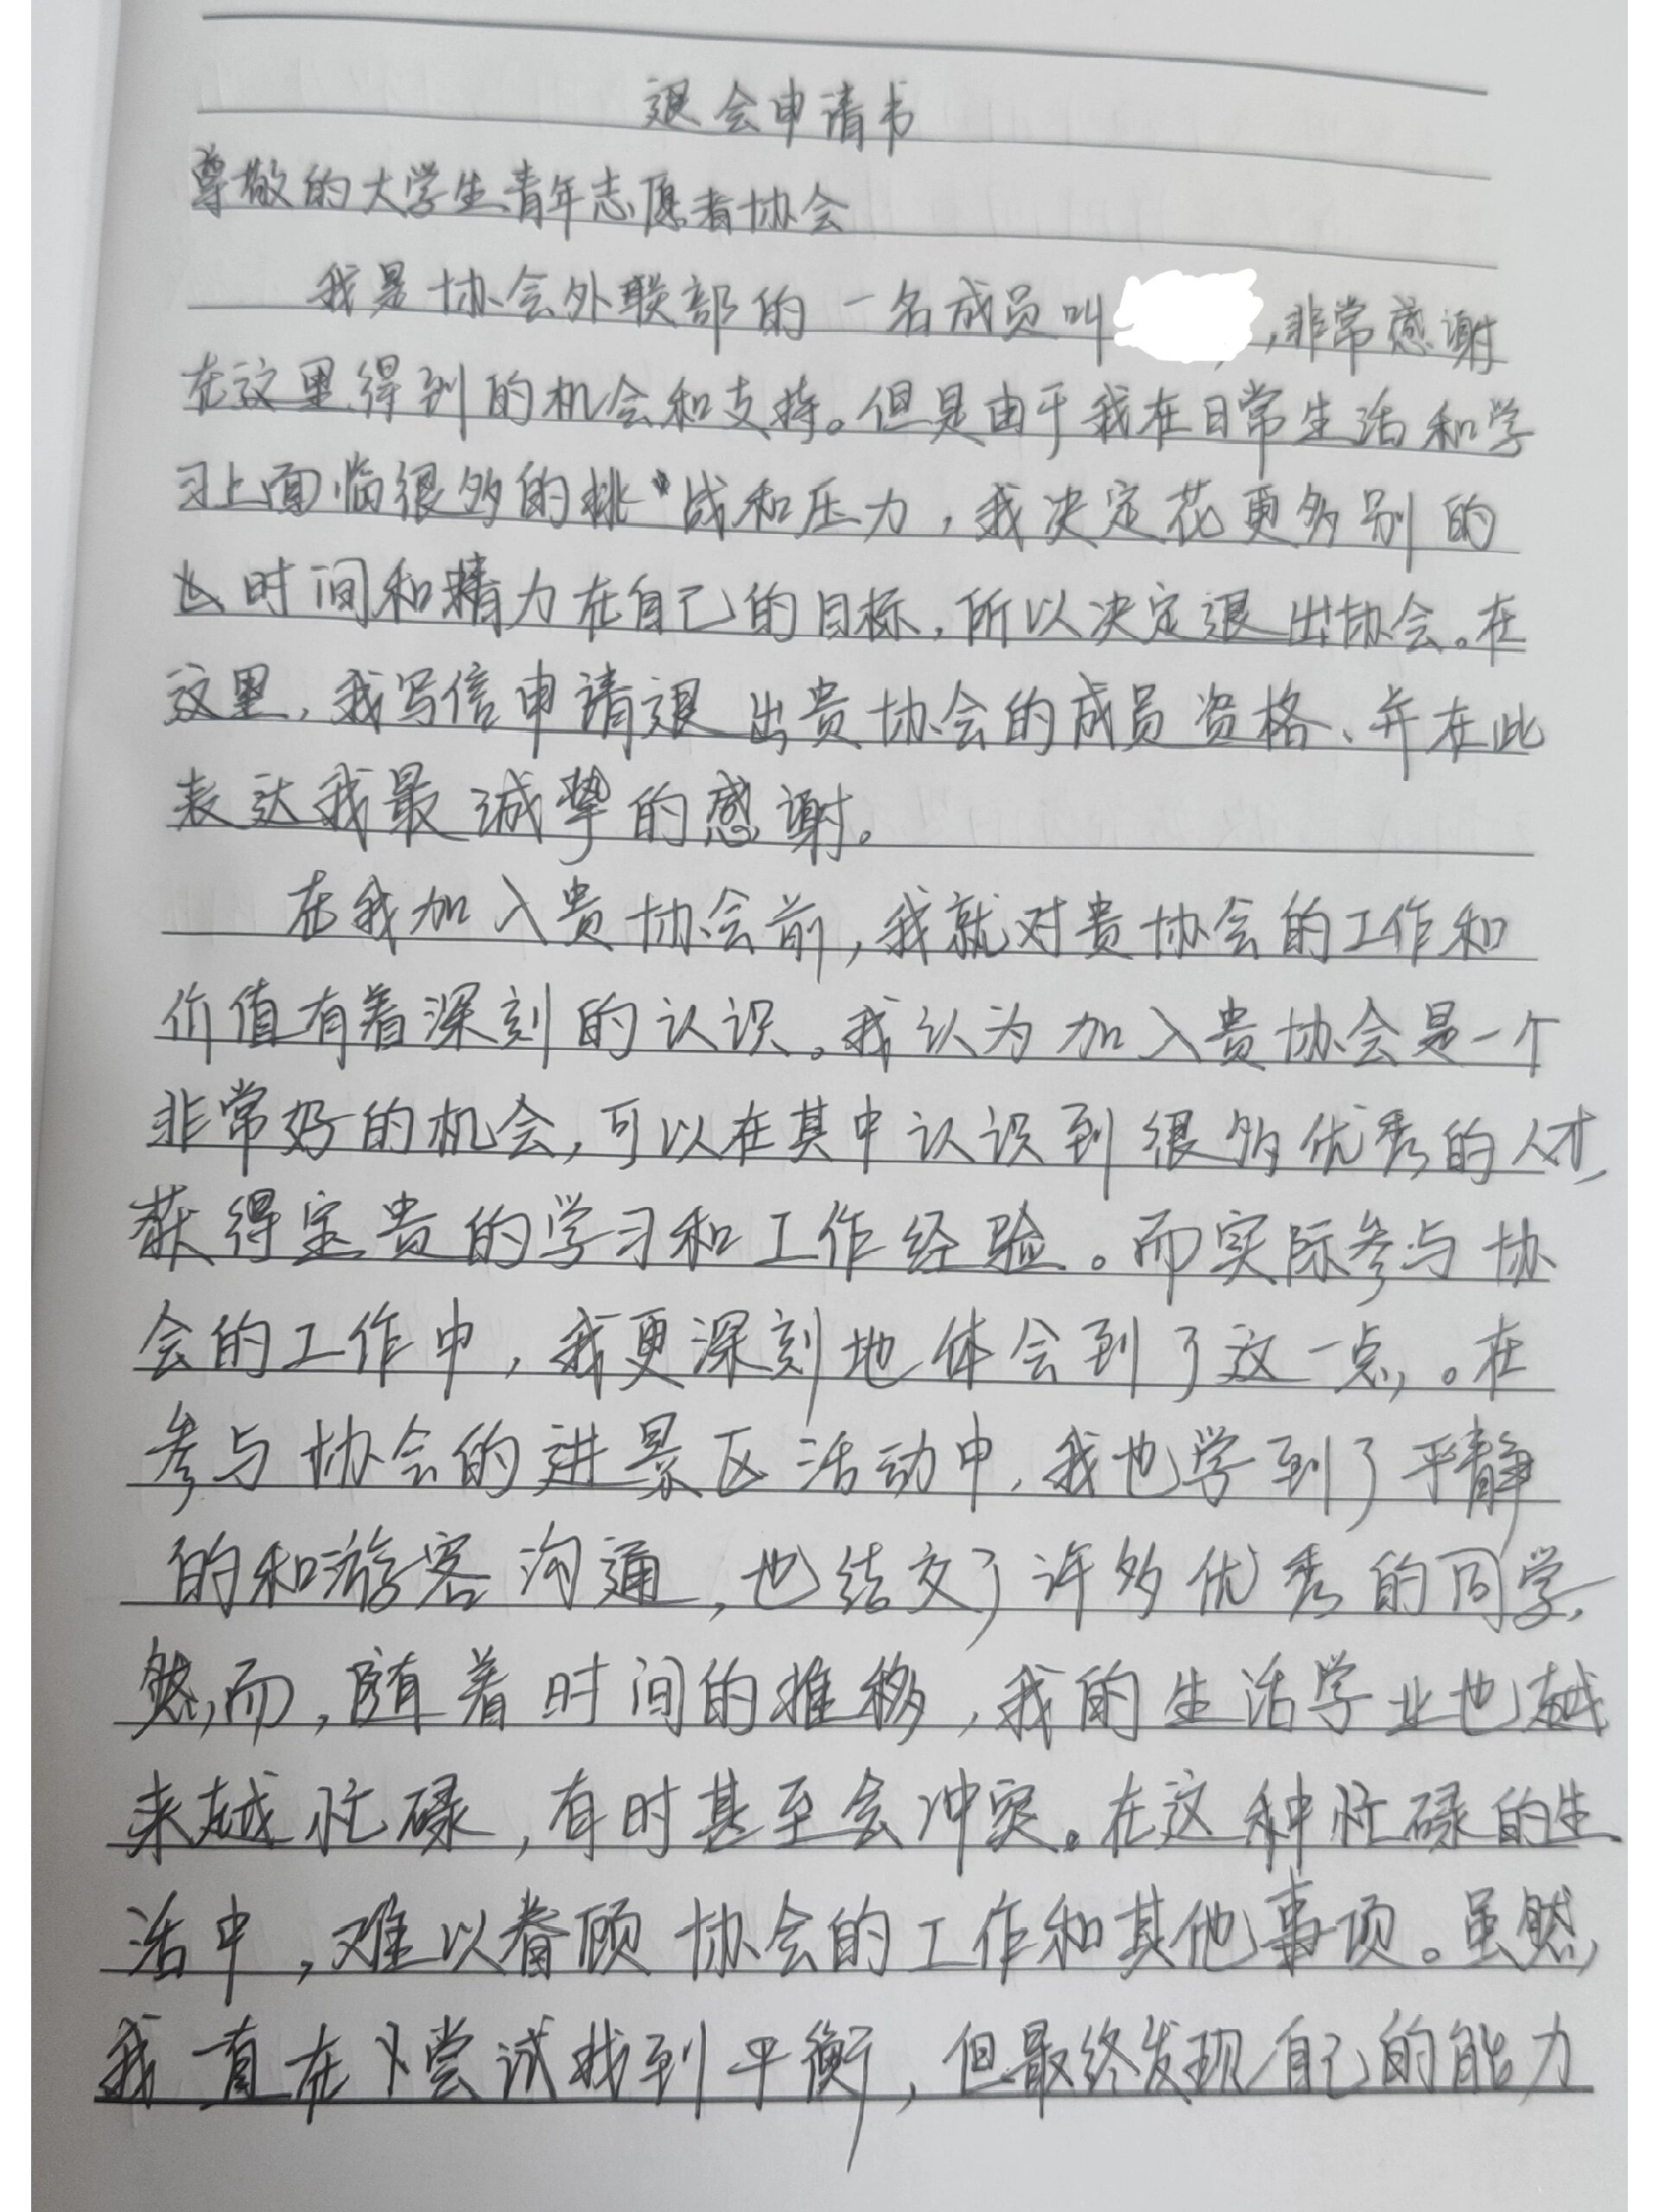 退会申请书
尊敬的大学生青年志愿者协会
我是协会外联部的一名成员叫,非常感谢
在这里得到的机会和支持。但是由于我在日常生活和学
习上面临很多的挑战和压力,我决定花更多别的
时间和精力在自己的目标,所以决定退出协会。在
这里,我写信申请退出贵协会的成员资格、并在此
表达我最诚挚的感谢。
在我加入贵协会前,我就对贵协会的工作和
价值有着深刻的认识。我认为加入贵协会是一个
非常好的机会,可以在其中认识到很多优秀的人才,
获得宝贵的学习和工作经验。而实际参与协
会的工作中,我更深刻地体会到了这一点,。在
参与协会的进景区活动中,我也学到了平静
的和游客沟通,也结交了许多优秀的同学,
然而,随着时间的推移,我的生活学业也越
来越忙碌,有时甚至会冲突。在这种忙碌的生
活中,难以眷顾协会的工作和其他事项。虽然
我一直在尝试找到平衡,但最终发现自己的能力